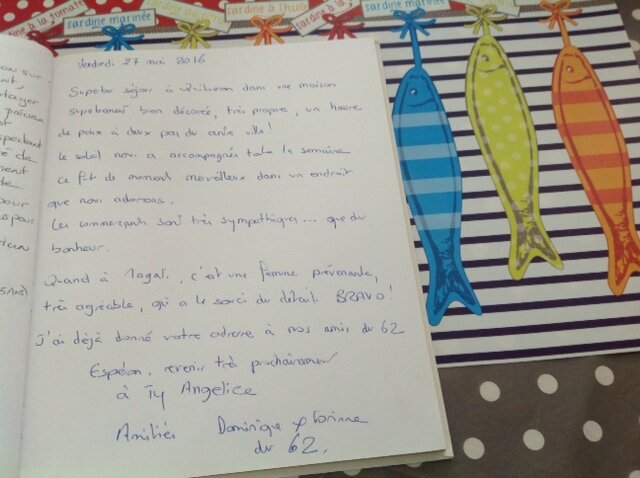 sardine à la tomate
sardine marinée
sardine à l'huile
sardine à la
sardine marinée
Vendredi 27 mai 2016
Superbe séjour à Quiberon dans une maison
superbement bien décorée, très propre, un havre
de paix à deux pas du centre ville!
Le soleil nous a accompagnés toute la semaine
ce fut de moment merveilleux dans un endroit
que nous adorons.
Les commerçants sont très sympathiques... que du
bonheur.
Quand à Magali, c'est une femme prévenante,
très agréable, qui a le souci du détail BRAVO!
J'ai déjà donné votre adresse à nos amis du 62
Espéron revenir très prochainement
à Ty Angelice
Amitiés Dominique & Corinne
du 62.